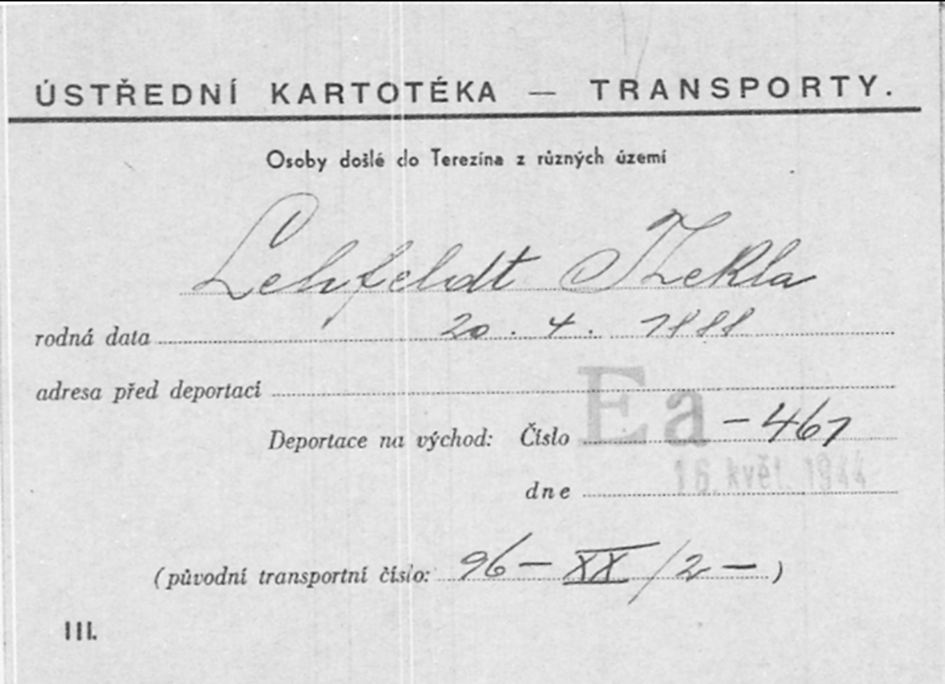 ÚSTŘEDNÍ KARTOTÉKA — TRANSPORTY.
Osoby došlé do Terezína z různých území
Lehfeldt Thekla
rodná data 20. 4. 1888
adresa před deportací
Deportace na východ: Číslo Ea -461
dne 16. květ. 1944
(původní transportní číslo: 96 - XX/2 - )
III.